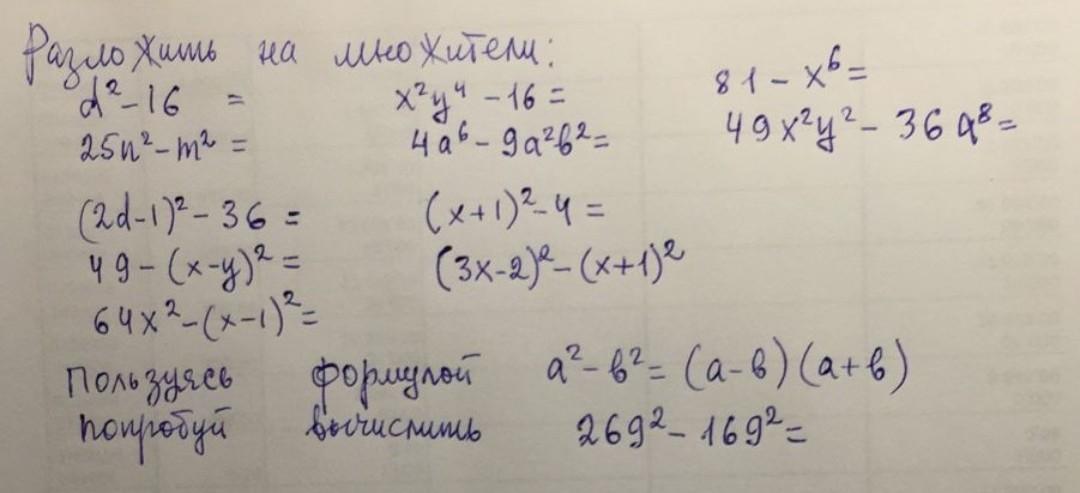 Разложить на множители:
d²-16 = x²y⁴ -16 = 81 - x⁶=
25n²-m² = 4a⁶- 9a²b²= 49x²y²- 36a⁸=
(2d-1)²- 36 = (x+1)²-4 =
49-(x-y)²= (3x-2)²-(x+1)²
64x²-(x-1)²=
Пользуясь формулой a²-b²= (a-b)(a+b)
попробуй вычислить 269²- 169²=